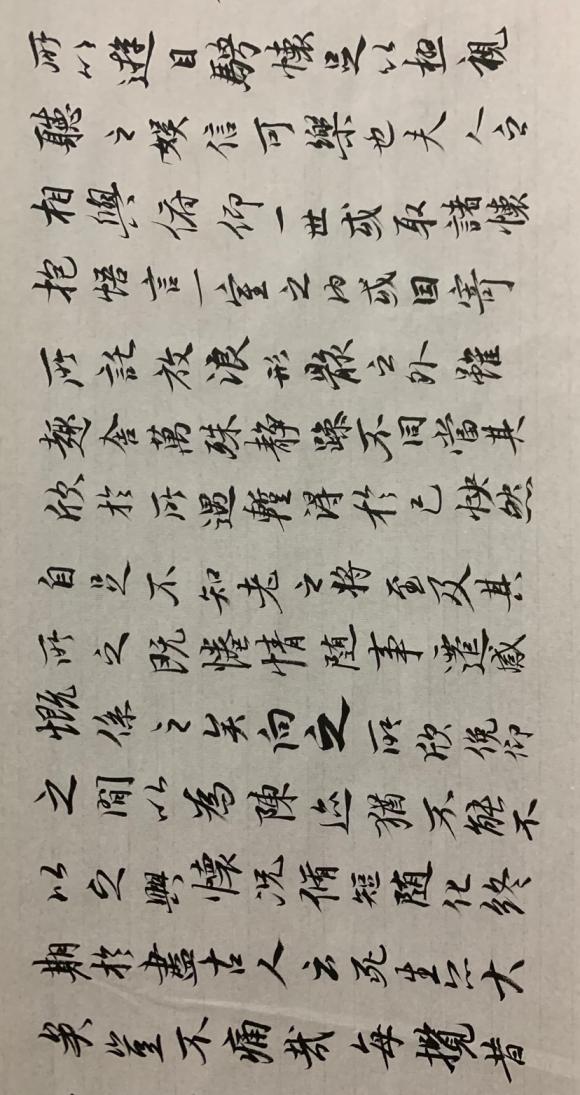 所以遊目騁懷足以極視
聽之娛信可樂也夫人之
相與俯仰一世或取諸懷
抱悟言一室之內或因寄
所託放浪形骸之外雖
趣舍萬殊静躁不同當其
欣於所遇暫得於己怏然
自足不知老之將至及其
所之既惓情随事遷感
慨係之矣向之所欣俛仰
之閒以為陳迹猶不能不
以之興懷況脩短随化終
期於盡古人云死生亦大
矣豈不痛哉每攬昔